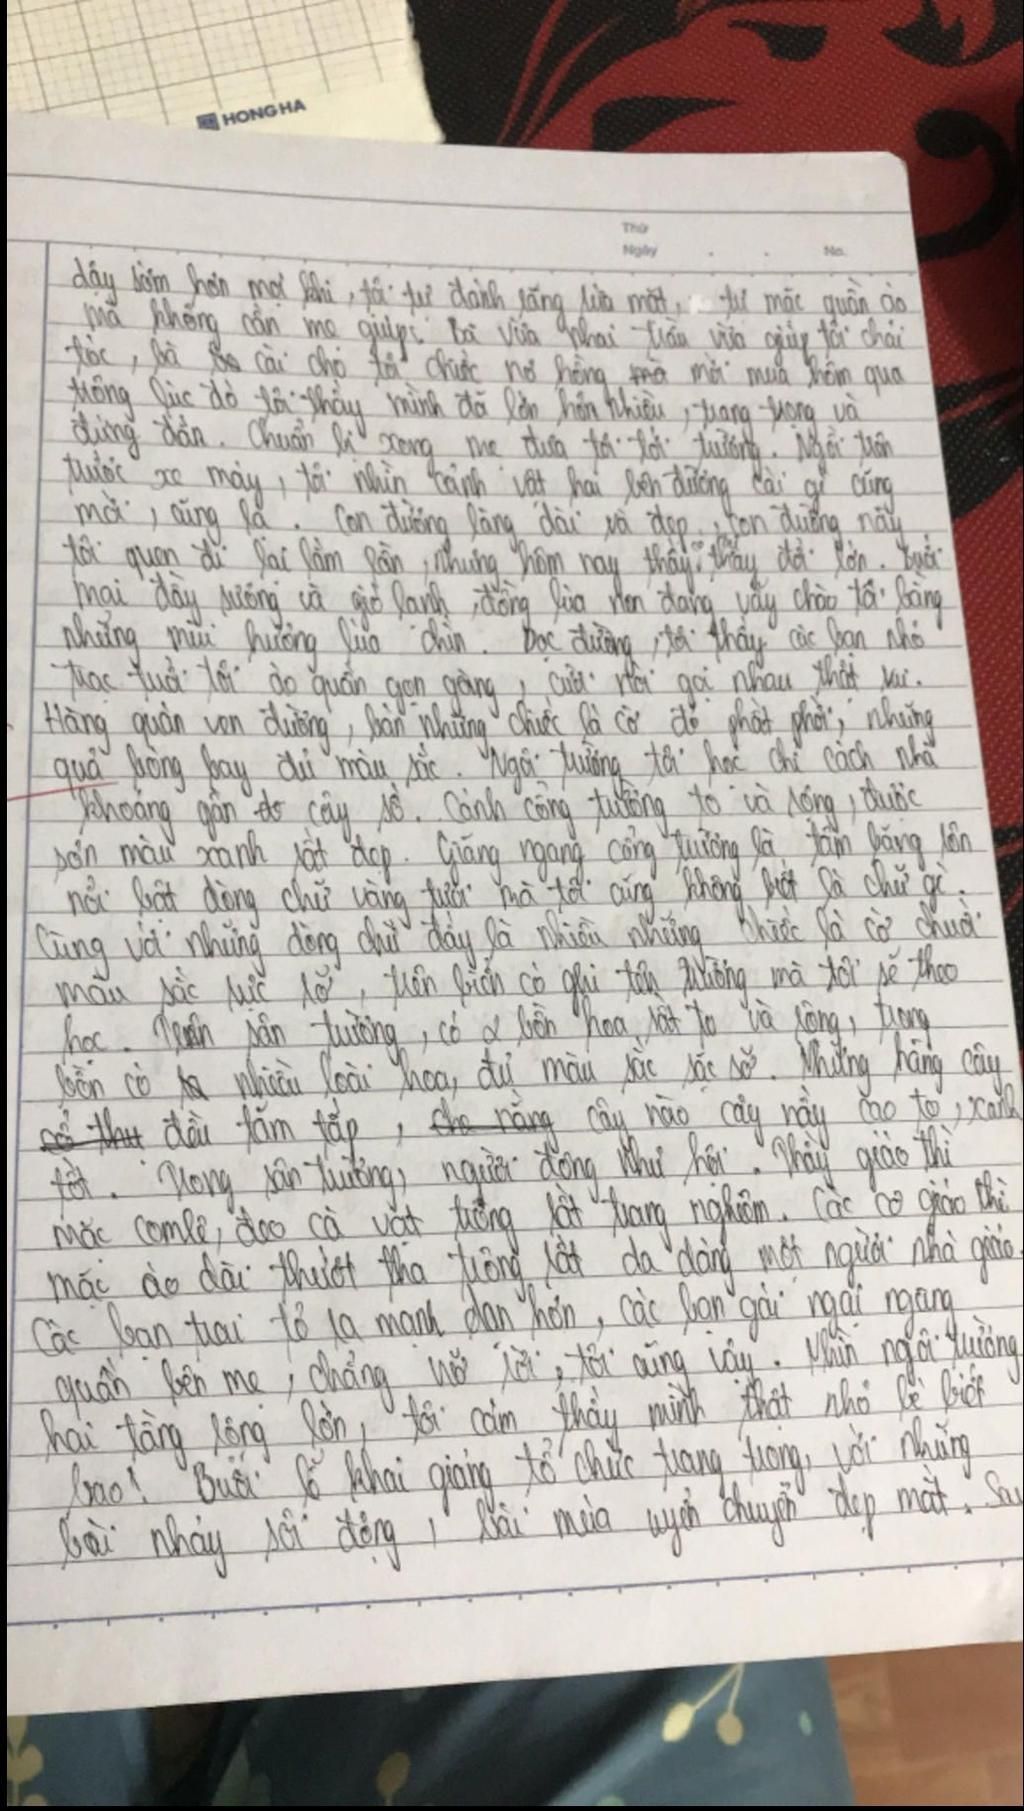 HONG HA
Thứ
Ngày . . No.
dậy sớm hơn mọi khi, tôi tự đánh răng rửa mặt, tự mặc quần áo
mà không cần mẹ giúp. Bà vừa nhai trầu vừa giúp tôi chải
tóc, bà cài cho tôi chiếc nơ hồng mới mua hôm qua
trông lúc đó tôi thấy mình đã lớn hơn nhiều, trang trọng và
đứng đắn. Chuẩn bị xong mẹ đưa tôi tới trường. Ngồi trên
trước xe máy, tôi nhìn cảnh vật hai bên đường cái gì cũng
mới, cũng lạ. Con đường làng dài và đẹp, con đường này
tôi quen đi lại lắm lần, nhưng hôm nay thấy thay đổi lớn. Buổi
mai đầy sương và gió lạnh, đồng lúa non đang vẫy chào tôi bằng
những mùi hương lúa chín. Dọc đường, tôi thấy các bạn nhỏ
trạc tuổi tôi áo quần gọn gàng, cười nói gọi nhau thật vui.
Hàng quán ven đường, bán những chiếc lá cờ đỏ phất phới, những
quả bóng bay đủ màu sắc. Ngôi trường tôi học chỉ cách nhà
khoảng gần cây số. Cánh cổng trường to và rộng, được
sơn màu xanh rất đẹp. Giăng ngang cổng trường là tấm băng rôn
nổi bật dòng chữ vàng tươi mà tôi cũng không biết là chữ gì.
Cùng với những dòng chữ đấy là nhiều những chiếc lá cờ chuối
màu sắc rực rỡ, trên biển có ghi tên trường mà tôi sẽ theo
học. Trên sân trường, có 2 bồn hoa rất to và rộng, trong
bồn có nhiều loài hoa, đủ màu sắc sặc sỡ. Những hàng cây
đều tăm tắp, che nắng cây nào cây nấy cao to, xanh
tốt. Trong sân trường, người đông như hội. Thầy giáo thì
mặc comlê, đeo cà vạt trông rất trang nghiêm. Các cô giáo thì
mặc áo dài thướt tha trông rất da dáng một người nhà giáo.
Các bạn trai tỏ ra mạnh dạn hơn, các bạn gái ngại ngang
quấn bên mẹ, chẳng nỡ rời, tôi cũng vậy. Nhìn ngôi trường
hai tầng rộng lớn, tôi cảm thấy mình thật nhỏ bé biết
bao! Buổi lễ khai giảng tổ chức trang trọng, với những
bài nhảy sôi động, bài múa uyển chuyển đẹp mắt. Sau